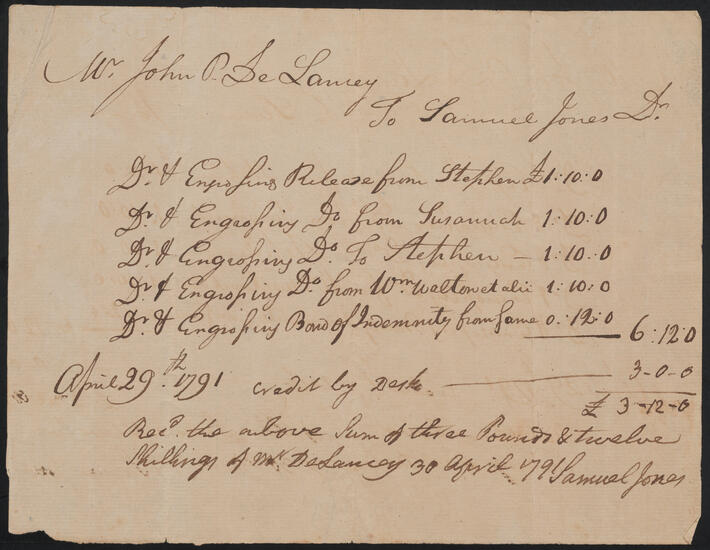 Mr John P. De Lancey
To Samuel Jones Dr
Dr & Engrossing Release from Stephen £1:10:0
Dr & Engrossing Do from Susannah 1:10:0
Dr & Engrossing Do To Stephen — 1:10:0
Dr & Engrossing Do from Wm Walton et alii 1:10:0
Dr & Engrossing Bond of Indemnity from Same 0:12:0 6:12:0
April 29th 1791 credit by Desk 3-0-0
£ 3-12-0
Recd. the above Sum of three Pounds & twelve
Shillings of Mr DeLancey 30 April 1791 Samuel Jones